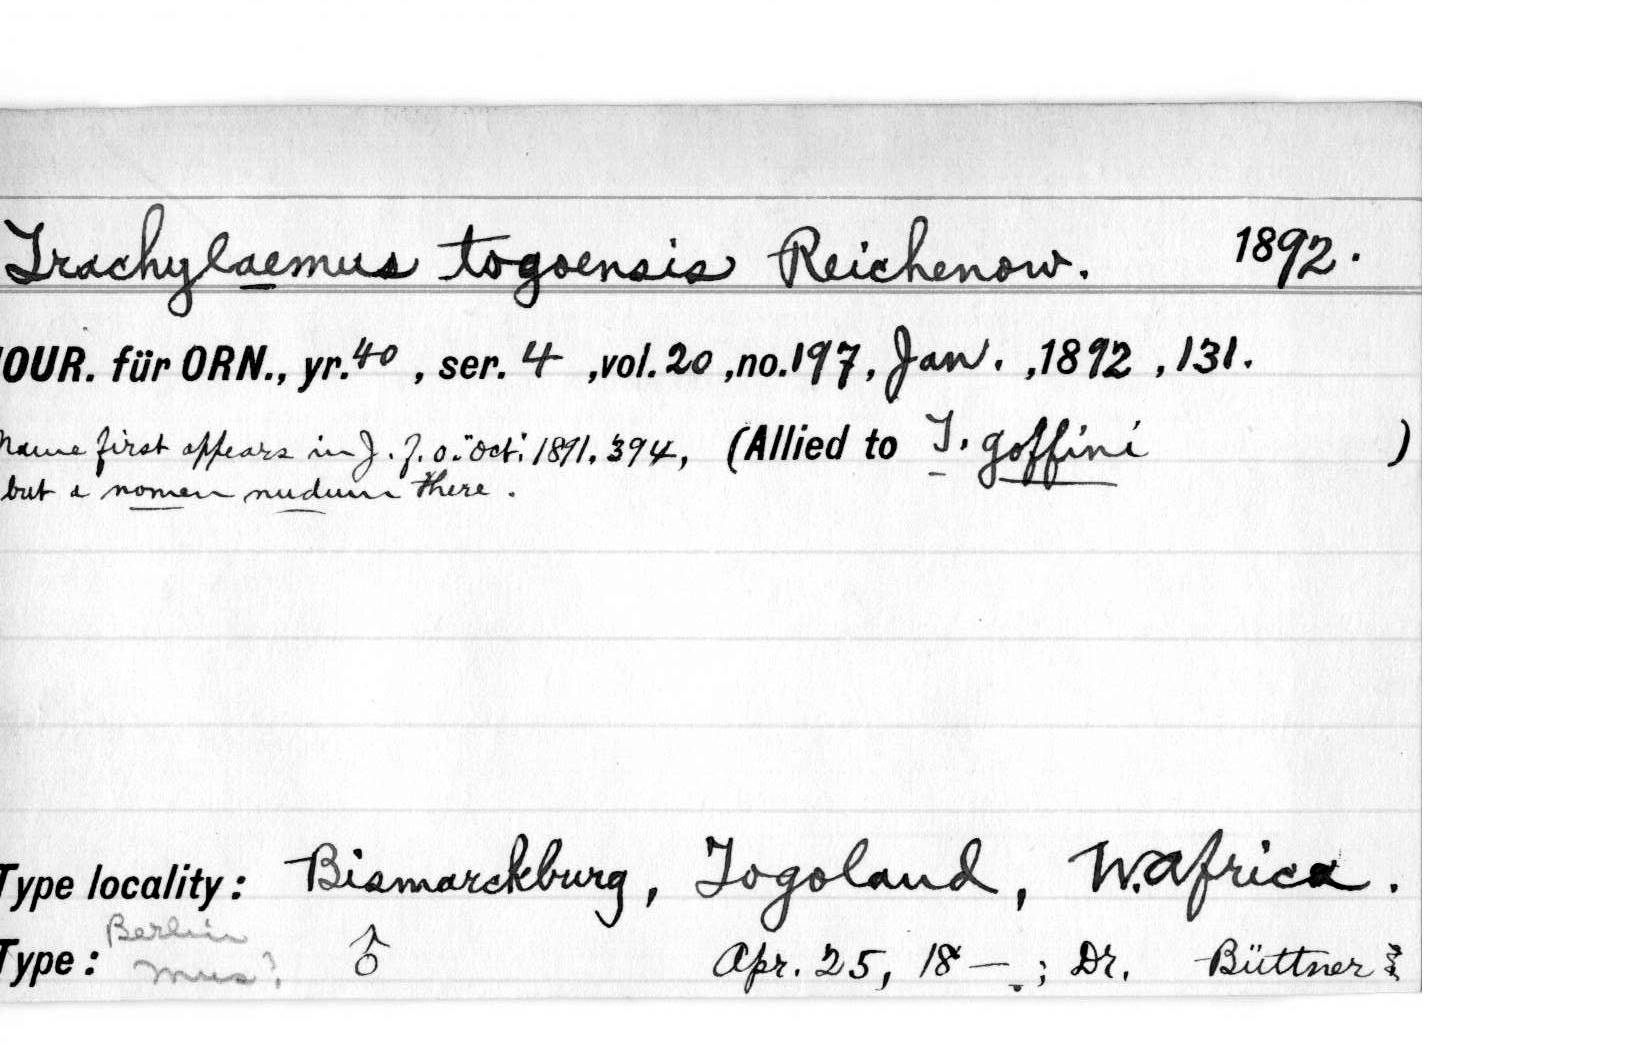 Trachylaemus togoensis Reichenow. 1892.
JOUR. für ORN., yr. 40, ser. 4, vol. 20, no. 197, Jan., 1892, 131.
Name first appears in J. f. O. "Oct." 1891, 394, (Allied to T. goffini )
but a nomen nudum there.
Type locality: Bismarckburg, Togoland, W. Africa.
Berlin
Type: Mus? ♂ Apr. 25, 18—.; Dr. Büttner